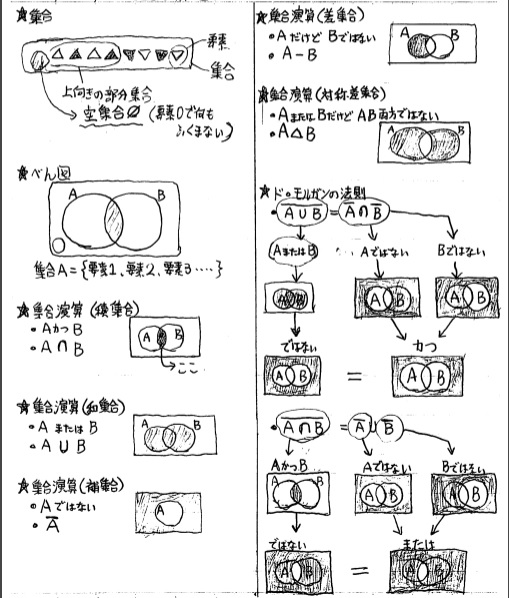 ★集合
要素
集合
上向きの部分集合
→空集合Ø (要素0で何も
ふくまない)
★べん図
A B
集合A={要素1、要素2、要素3‥‥}
★集合演算(積集合)
・AかつB
・A∩B
A B
→ここ
★集合演算(和集合)
・A または B
・A∪B
A B
★集合演算(補集合)
・Aではない
・A̅
A
★集合演算(差集合)
・AだけどBではない
・A-B
A B
★集合演算(対称差集合)
・AまたはBだけどAB両方ではない
・A△B
A B
★ド・モルガンの法則
・A̅∪̅B̅=A̅∩B̅
AまたはB Aではない Bではない
A B A B A B
ではない かつ
A B = A B
・A̅∩̅B̅=A̅∪B̅
AかつB Aではない Bではない
A B A B A B
ではない または
A B = A B